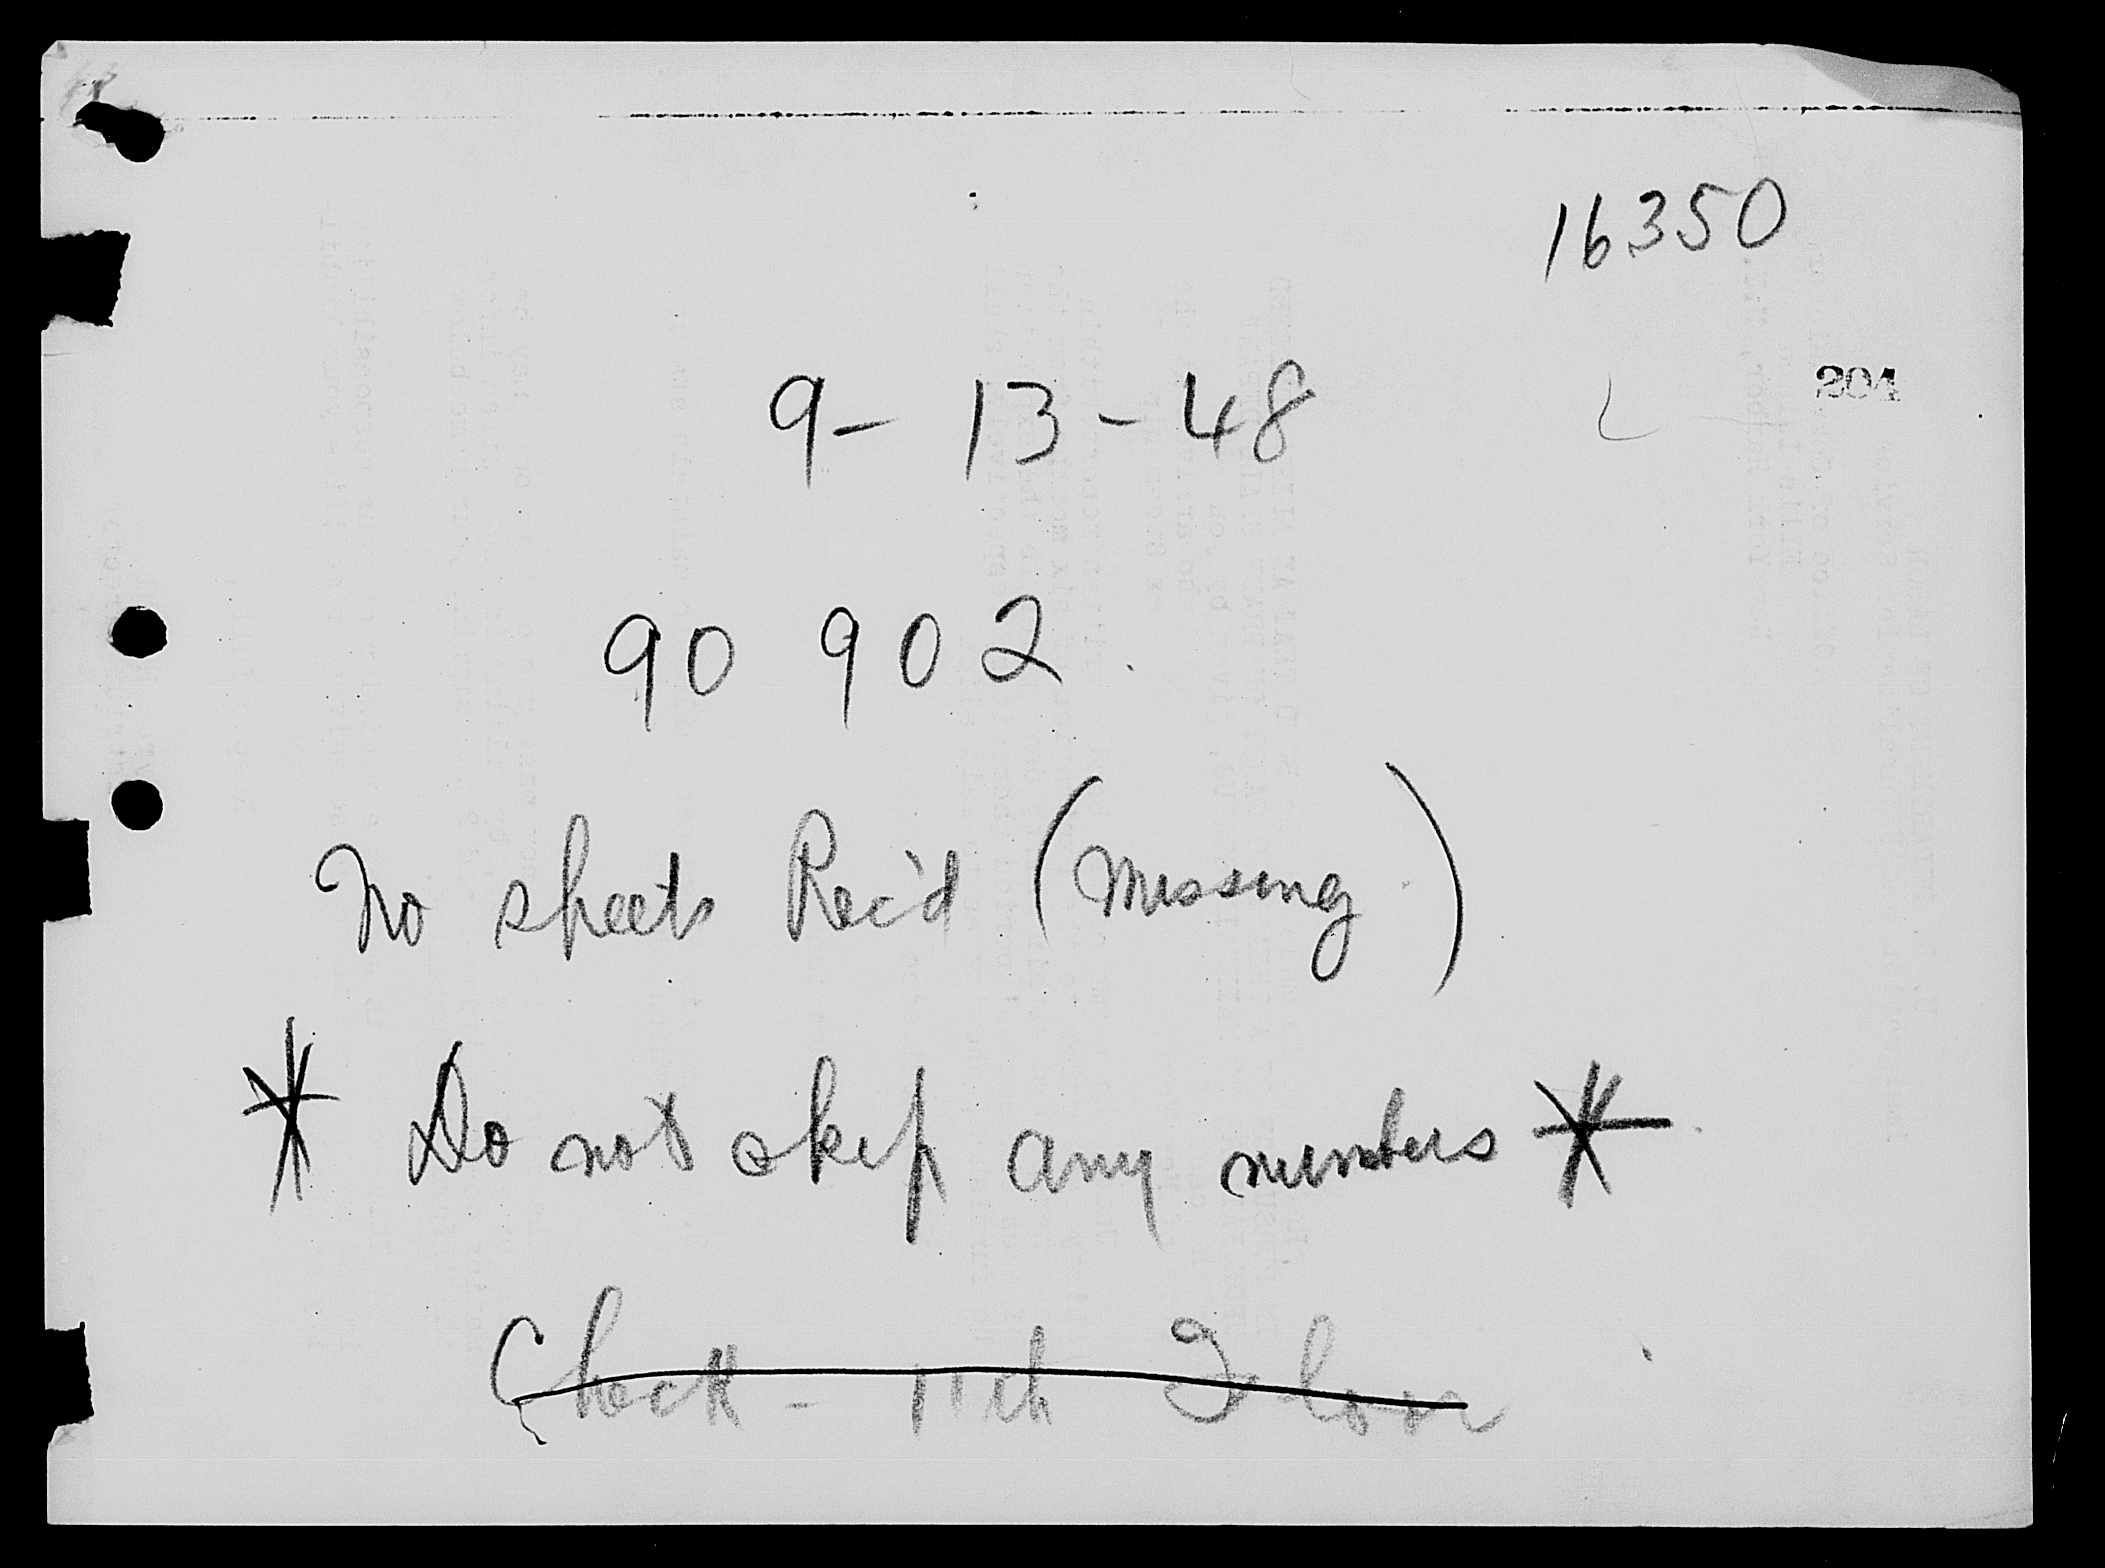 16350
304
9- 13 - 48
90 902.
No sheets Rec'd (Missing)
* Do not skip any numbers *
Check - 11th Floor